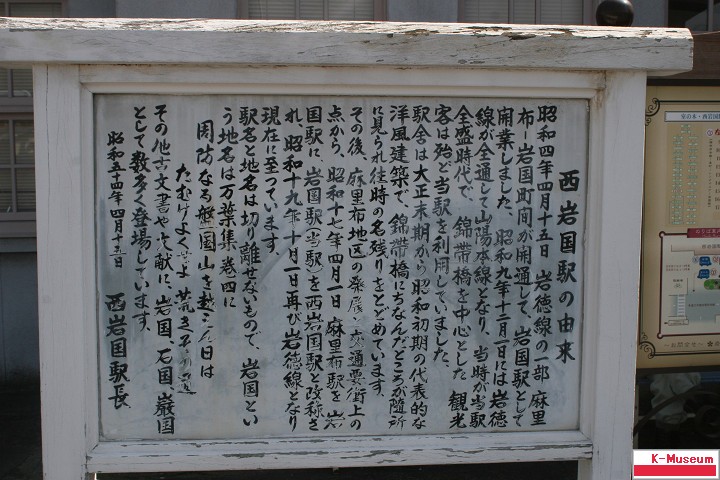 西岩国駅の由来
昭和四年四月十五日 岩徳線の一部 麻里
布−岩国町間が開通して、岩国駅として
開業しました、昭和九年十二月一日には岩徳
線が全通して山陽本線となり、当時が当駅
全盛時代で、錦帯橋を中心とした 観光
客は殆ど当駅を利用していました。
駅舎は大正末期から昭和初期の代表的な
洋風建築で、錦帯橋にちなんだところが随所
に見られ往時の名残りをとどめています。
その後、麻里布地区の発展と交通要衝上の
点から、昭和十七年四月一日 麻里布駅を 岩
国駅に、岩国駅(当駅)を西岩国駅と改称さ
れ、昭和十九年十月一日再び岩徳線となり
現在に至っています。
駅名と地名は切り離せないもので、岩国とい
う地名は万葉集 巻四に
周防なる磐国山を越えん日は
たむけよくせよ 荒き その道
その他古文書や文献に、岩国、石国、巌国
として数多く登場しています。
昭和五十四年四月十五日
西岩国駅長
K-Museum